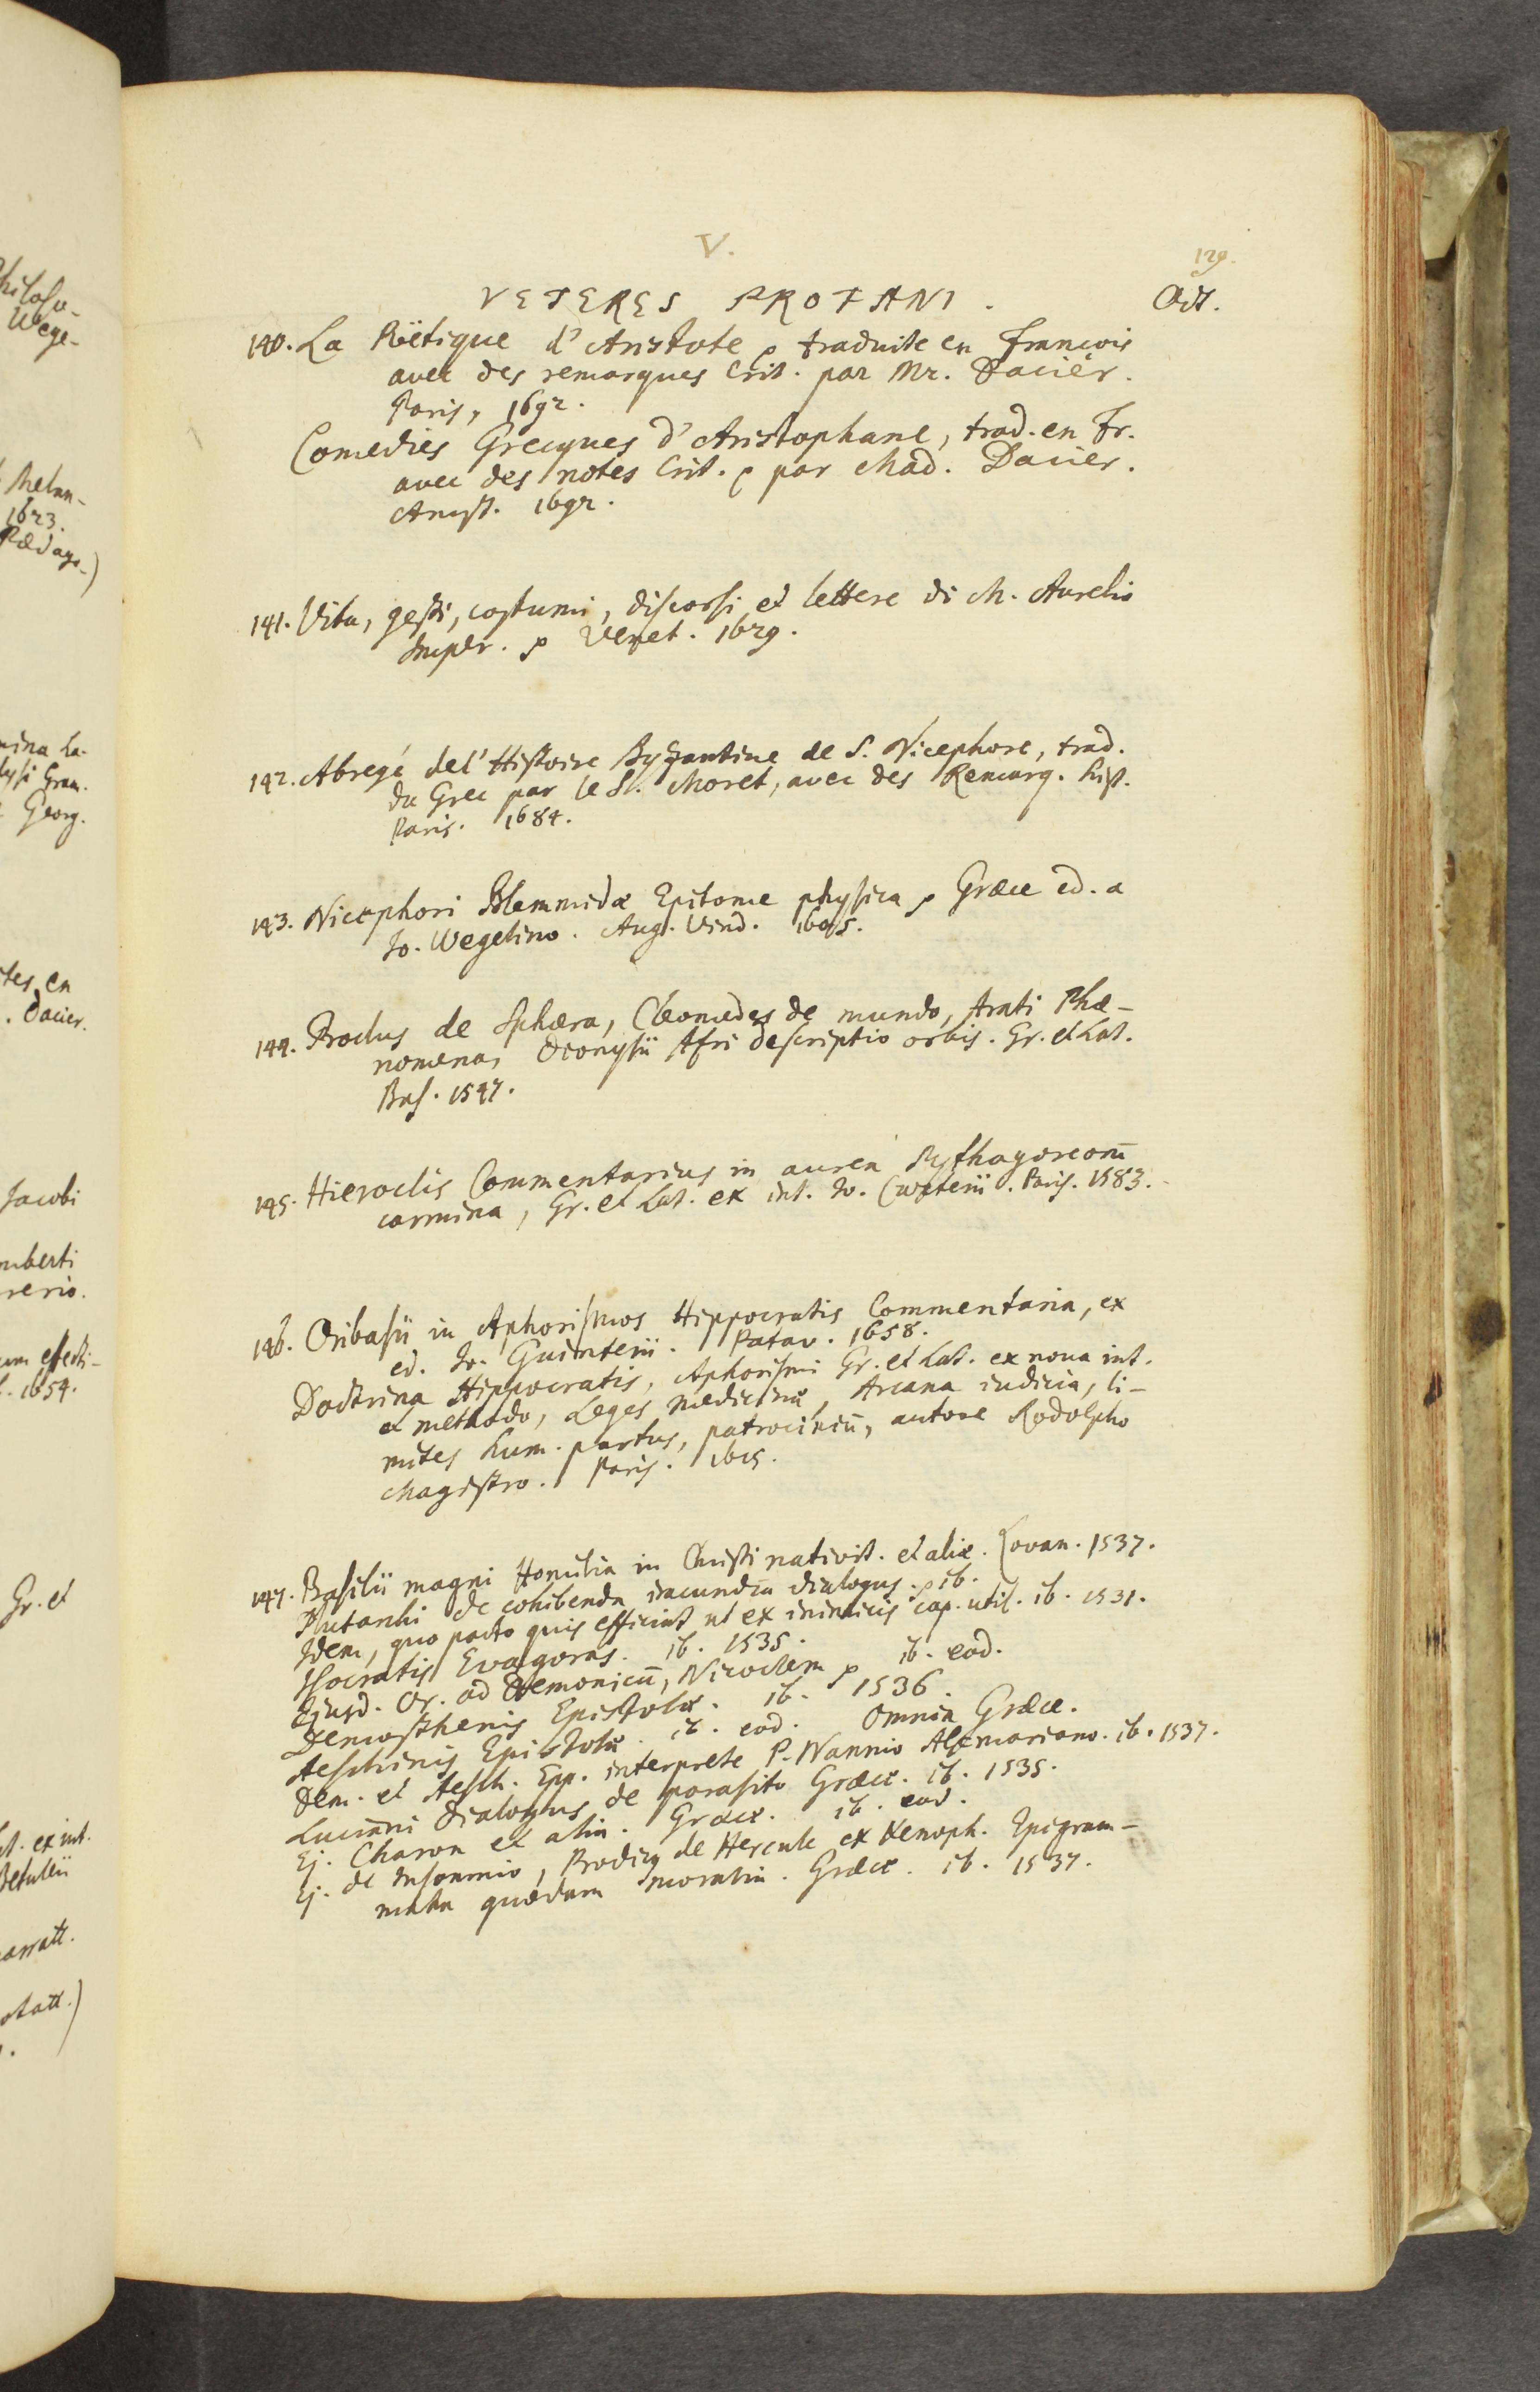 V.
129.
VETERES PROFANI.
Oct.
140. La Poëtique d'Aristote traduite en Francois
avec des remarques Crit. par Mr. Dacier.
Paris, 1692.
Comedies Grecques d'Aristophane, trad. en Fr.
avec des notes Crit. par Mad. Dacier.
Amst. 1692.
141. Vita, gesti, costumi, discorsi et lettere di M. Aurelio
Imper. Venet. 1629.
142. Abregé de l'Histoire Byzantine de S. Nicephore, trad.
du Grec par le Sr. Moret, avec des Remarq. hist.
Paris. 1684.
143. Nicephori Blemmidæ Epitome physica Græce ed. a
Jo. Wegelino. Aug. Vind. 1605.
144. Proclus de Sphæra, Cleomedes de mundo, Arati Phæ-
nomena, Dionysii Afri descriptio orbis. Gr. et Lat.
Bas. 1547.
145. Hieroclis Commentarius in aurea Pythagoreorū
carmina, Gr. et Lat. ex int. Jo. Curterii. Paris. 1583.
146. Oribasii in Aphorismos Hippocratis Commentaria, ex
ed. Jo. Guinterii. Patav. 1658.
Doctrina Hippocratis, Aphorismi Gr. et Lat. ex noua int.
et methodo, Leges medicinæ, Arcana iudicia, li-
mites hum. partus, patrociniū, autore Rodolpho
Magistro. Paris. 1615.
147. Basilii magni Homilia in Christi nativit. et aliæ. Lovan. 1537.
Plutarchi de cohibenda iracundia dialogus. ib.
Idem, quo pacto quis efficiat ut ex inimicis cap. util. ib. 1531.
Isocratis Evagoras. ib. 1535.
Ejusd. Or. ad Demonicū, Nicoclem ib. eod.
Demosthenis Epistolæ. ib. 1536.
Aeschinis Epistolæ. ib. eod. Omnia Græce.
Dem. et Aesch. Epp. interprete P. Nannio Alcmariano. ib. 1537.
Luciani Dialogus de parasito Græce. ib. 1535.
Ej. Charon et alia. Græce. ib. eod.
Ej. de Insomnio, Prodicq de Hercule ex Xenoph. Epigram-
mata quædam moralia. Græce. ib. 1537.